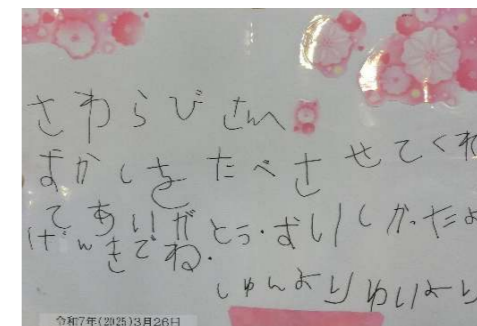 さわらび さんへ
おかしを たべさ せてくれ
て あいが とう・おいしかったよ
げんきでね.
しゅんより ゆいより
令和7年(2025)3月26日